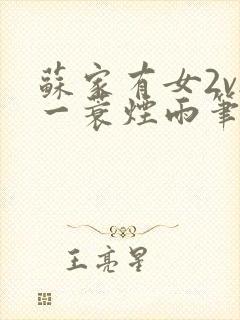 蘇家有女2v
一蓑煙雨筆
王亮星